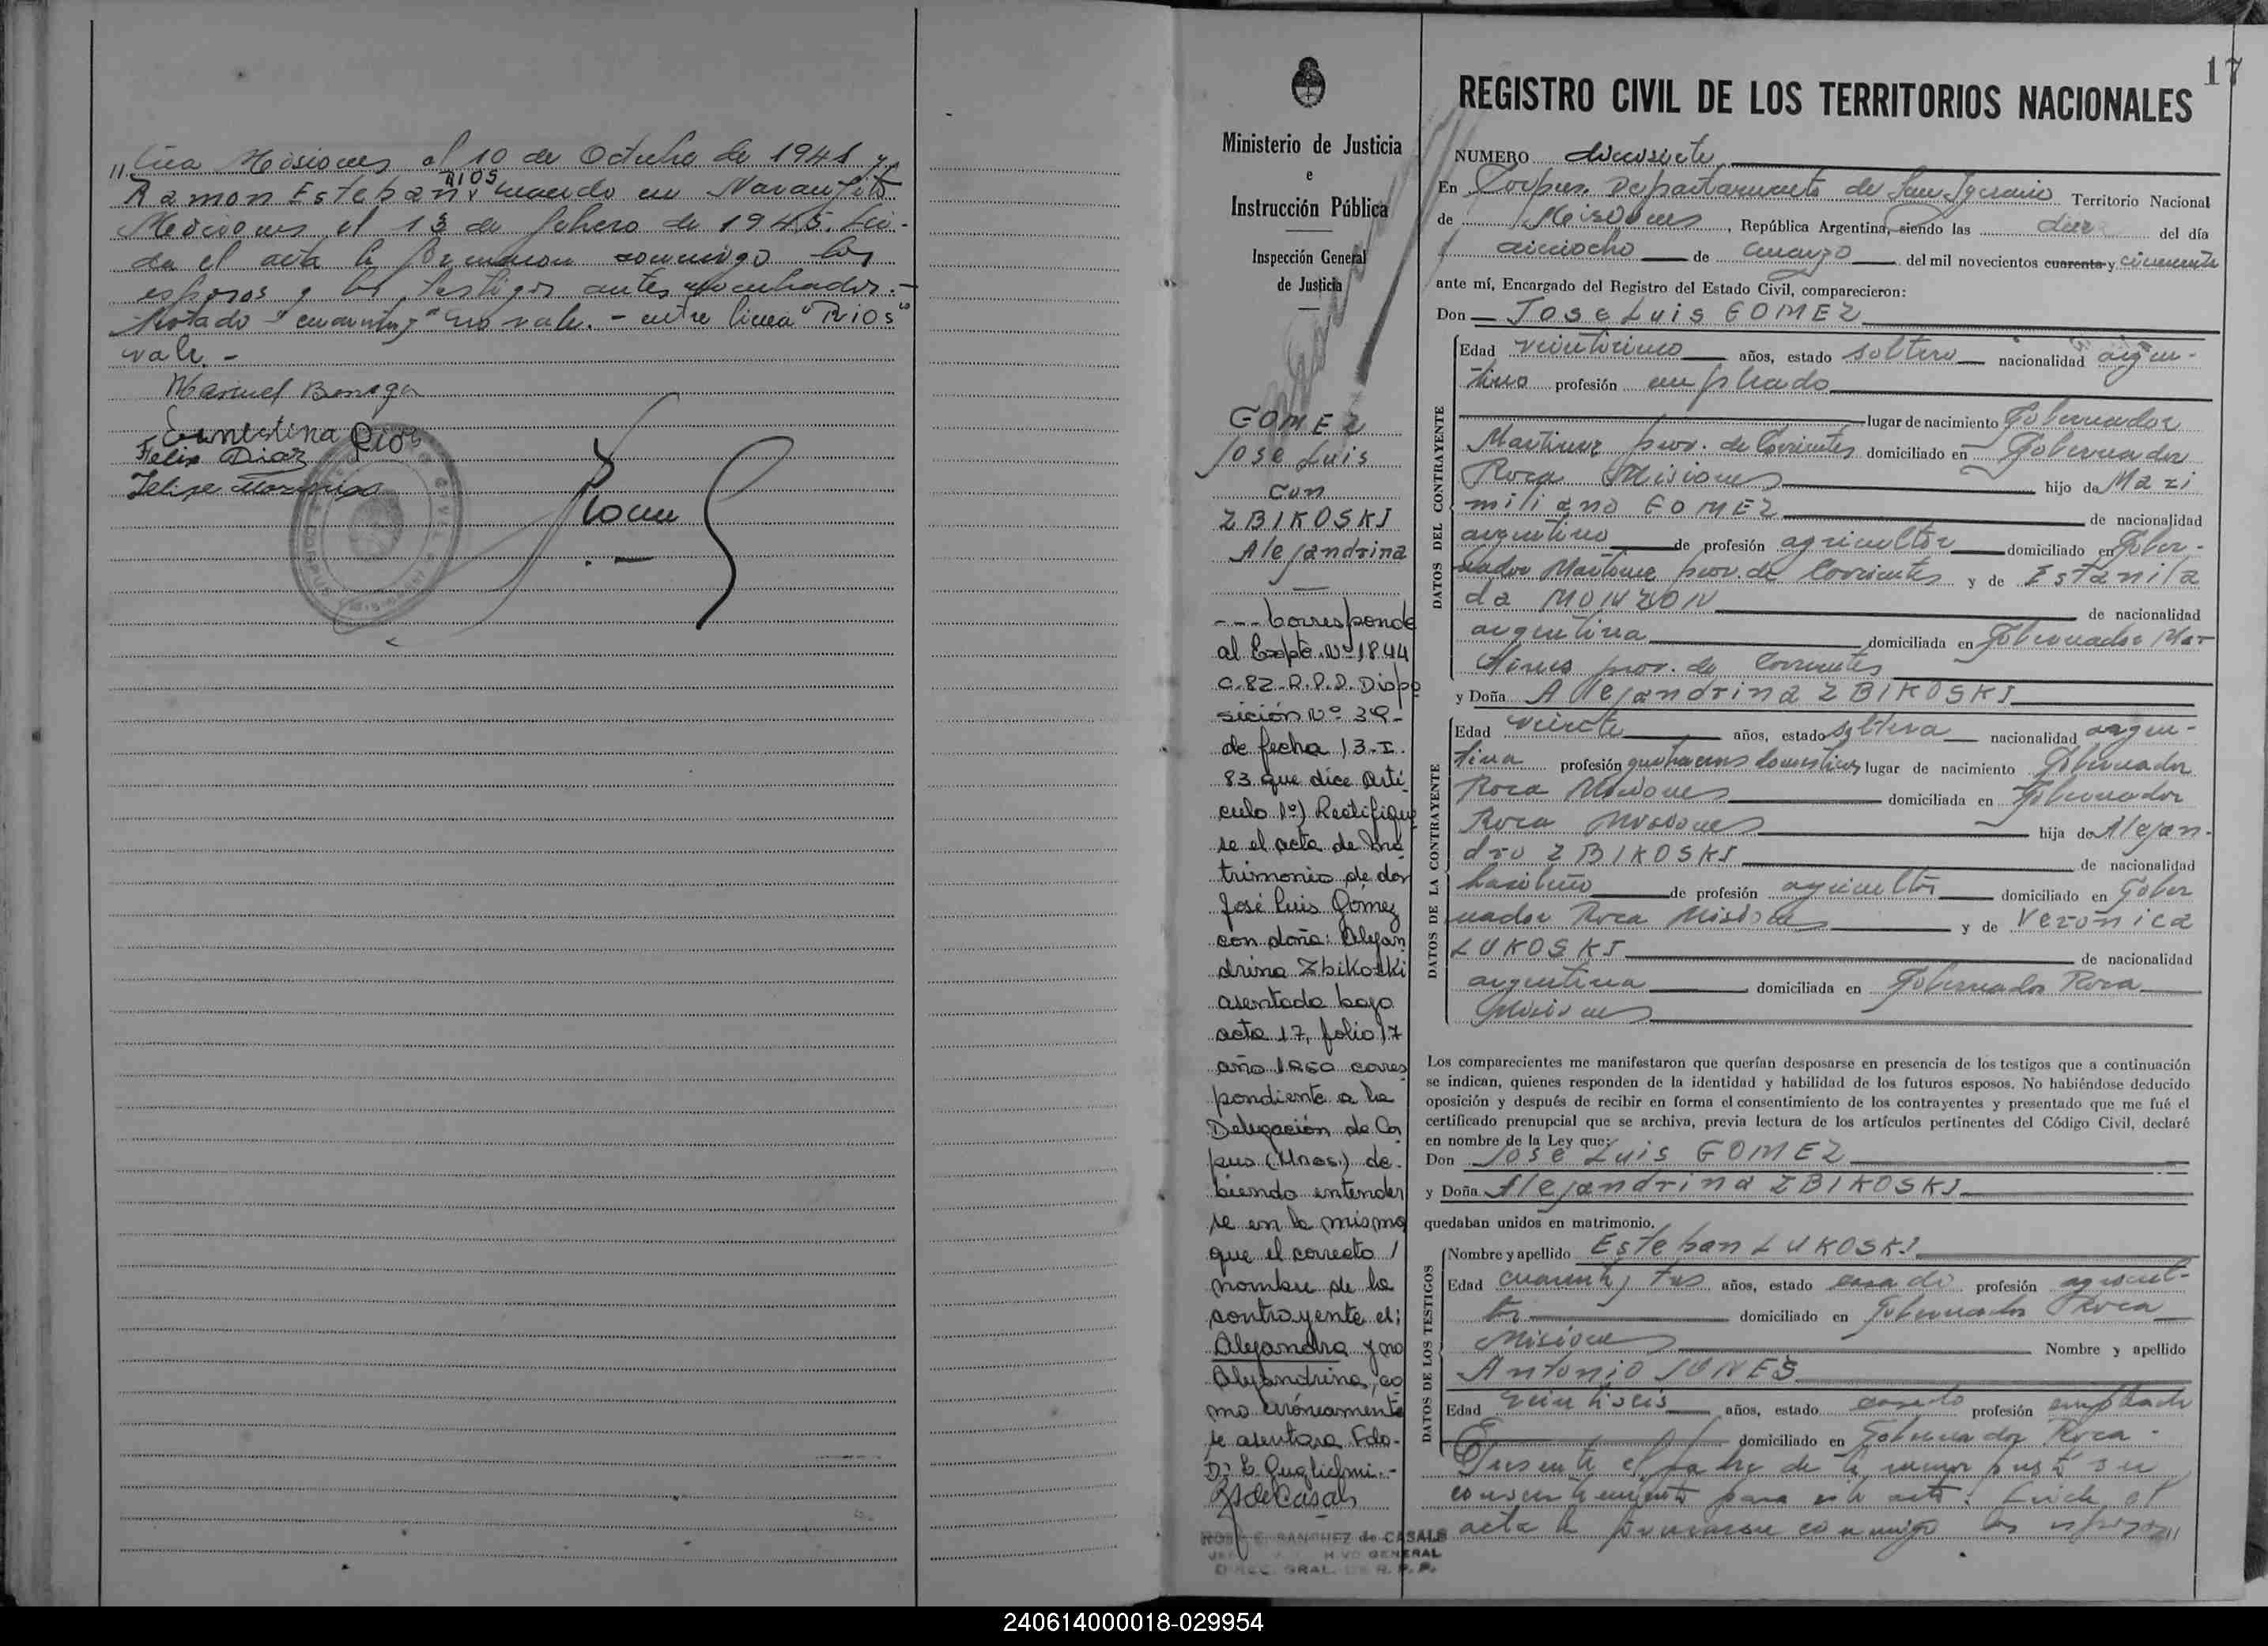 "cia Misiones el 10 de Octubre de 1941 y
RIOS
Ramon Esteban, nacido en Naranjito
Misiones el 13 de febrero de 1945. Lei-
da el acta la firmaron conmigo los
esposos y los testigos antes nombrados.-
Testado "cuarenta y" no vale. - entre linea "RIOS"
vale. -
Manuel Benega
Ernestina Rios
Felix Diaz
Felipe
17
REGISTRO CIVIL DE LOS TERRITORIOS NACIONALES
Ministerio de Justicia
e
Instrucción Pública
Inspección General
de Justicia
GOMEZ
Jose Luis
con
ZBIKOSKI
Alejandrina
--- Corresponde
al Expte. Nº 1844
C.82-R.P.P. Dispo
sición Nº 39-
de fecha 13-I-
83 que dice Artí-
culo 1º) Rectifíque
se el acta de ma
trimonio de don
José Luis Gómez
con doña: Alejan
drina Zbikoski
asentada bajo
acta 17, folio 17
año 1950 corres
pondiente a la
Delegación de Cor
pus (Mnes.) de-
biendo entender
se en la misma
que el correcto /
nombre de la
contrayente es:
Alejandra y no
Alejandrina, co
mo erróneamente
se asentara Fdo.
Dr. E. Guglielmi.-
RSdeCasals
ROSA E. SANCHEZ de CASALS
GENERAL
GRAL. DE R. P. P.
NUMERO diecisiete
En Corpus. Departamento de San Ignacio Territorio Nacional
de Misiones, República Argentina, siendo las diez del día
dieciocho de marzo del mil novecientos cuarenta y cincuenta
ante mí, Encargado del Registro del Estado Civil, comparecieron:
Don Jose Luis GOMEZ
DATOS DEL CONTRAYENTE
Edad veinticinco años, estado soltero nacionalidad argen-
tino profesión empleado
lugar de nacimiento Gobernador
Martinez prov. de Corrientes domiciliado en Gobernador
Roca Misiones hijo de Maxi
miliano GOMEZ de nacionalidad
argentino de profesión agricultor domiciliado en Gober-
nador Martinez prov. de Corrientes y de Estanila
da MONZON de nacionalidad
argentina domiciliada en Gobernador Mar-
tinez prov. de Corrientes
y Doña Alejandrina ZBIKOSKI
DATOS DE LA CONTRAYENTE
Edad veinte años, estado soltera nacionalidad argen-
tina profesión quehaceres domesticos lugar de nacimiento Gobernador
Roca Misiones domiciliada en Gobernador
Roca Misiones hija de Alejan-
dro ZBIKOSKI de nacionalidad
brasileño de profesión agricultor domiciliado en Gober
nador Roca Misiones y de Veronica
LUKOSKI de nacionalidad
argentina domiciliada en Gobernador Roca
Misiones
Los comparecientes me manifestaron que querían desposarse en presencia de los testigos que a continuación
se indican, quienes responden de la identidad y habilidad de los futuros esposos. No habiéndose deducido
oposición y después de recibir en forma el consentimiento de los contrayentes y presentado que me fué el
certificado prenupcial que se archiva, previa lectura de los artículos pertinentes del Código Civil, declaré
en nombre de la Ley que:
Don José Luis GOMEZ
y Doña Alejandrina ZBIKOSKI
quedaban unidos en matrimonio.
DATOS DE LOS TESTIGOS
Nombre y apellido Esteban LUKOSKI
Edad cuarenta y tres años, estado casado profesión agricul-
tor domiciliado en Gobernador Roca
Misiones Nombre y apellido
Antonio JONES
Edad veintiseis años, estado casado profesión empleado
domiciliado en Gobernador Roca -
Presente el padre de la menor prestó su
consentimiento para este acto. Leida el
acta la firmaron conmigo los esposos //
240614000018-029954